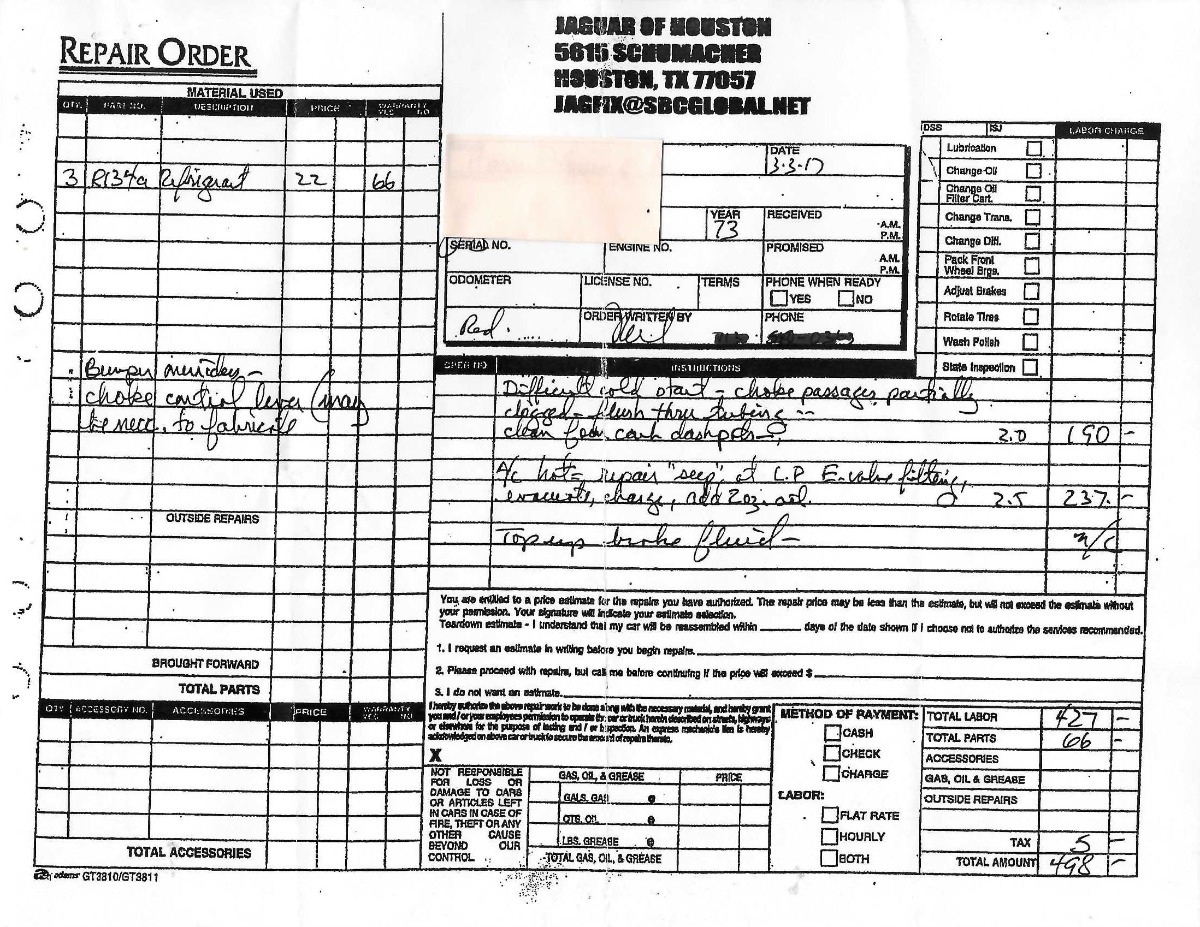 REPAIR ORDER
JAGUAR OF HOUSTON
5615 SCHUMACHER
HOUSTON, TX 77057
JAGFIX@SBCGLOBAL.NET
MATERIAL USED
QTY. PART NO. DESCRIPTION PRICE WARRANTY YES NO
3 R134a Refrigerant 22 66
Bumper
choke control lever (may
be nec. to fabricate
OUTSIDE REPAIRS
BROUGHT FORWARD
TOTAL PARTS
QTY ACCESSORY NO. ACCESSORIES PRICE WARRANTY YES NO
TOTAL ACCESSORIES
adams GT3810/GT3811
DATE
3-3-17
YEAR
73
RECEIVED
A.M.
P.M.
SERIAL NO.
ENGINE NO.
PROMISED
A.M.
P.M.
ODOMETER
LICENSE NO.
TERMS
PHONE WHEN READY
YES NO
Red.
ORDER WRITTEN BY
PHONE
DSS ISJ LABOR CHARGE
Lubrication
Change Oil
Change Oil
Filter Cart.
Change Trans.
Change Diff.
Pack Front
Wheel Brgs.
Adjust Brakes
Rotate Tires
Wash Polish
State Inspection
OPER NO INSTRUCTIONS
Difficult cold start - choke passages partially
clogged - flush thru tubing --
clean four carb dashpots - 2.0 190 -
A/c hot - repair "seep" at L.P E-valve fitting,
evacuate, charge, add 2oz. oil. 2.5 237. -
Top up brake fluid - n/c
You are entitled to a price estimate for the repairs you have authorized. The repair price may be less than the estimate, but will not exceed the estimate without
your permission. Your signature will indicate your estimate selection.
Teardown estimate - I understand that my car will be reassembled within ______ days of the date shown if I choose not to authorize the services recommended.
1. I request an estimate in writing before you begin repairs.
2. Please proceed with repairs, but call me before continuing if the price will exceed $
3. I do not want an estimate.
I hereby authorize the above repair work to be done along with the necessary material, and hereby grant
you and / or your employees permission to operate the car or truck herein described on streets, highways
or elsewhere for the purpose of testing and / or inspection. An express mechanic's lien is hereby
acknowledged on above car or truck to secure the amount of repairs thereto.
X
NOT RESPONSIBLE
FOR LOSS OR
DAMAGE TO CARS
OR ARTICLES LEFT
IN CARS IN CASE OF
FIRE, THEFT OR ANY
OTHER CAUSE
BEYOND OUR
CONTROL
GAS, OIL, & GREASE PRICE
GALS. GAS @
QTS. OIL @
LBS. GREASE @
TOTAL GAS, OIL, & GREASE
METHOD OF PAYMENT:
CASH
CHECK
CHARGE
LABOR:
FLAT RATE
HOURLY
BOTH
TOTAL LABOR 427 -
TOTAL PARTS 66 -
ACCESSORIES
GAS, OIL & GREASE
OUTSIDE REPAIRS
TAX 5 -
TOTAL AMOUNT 498 -